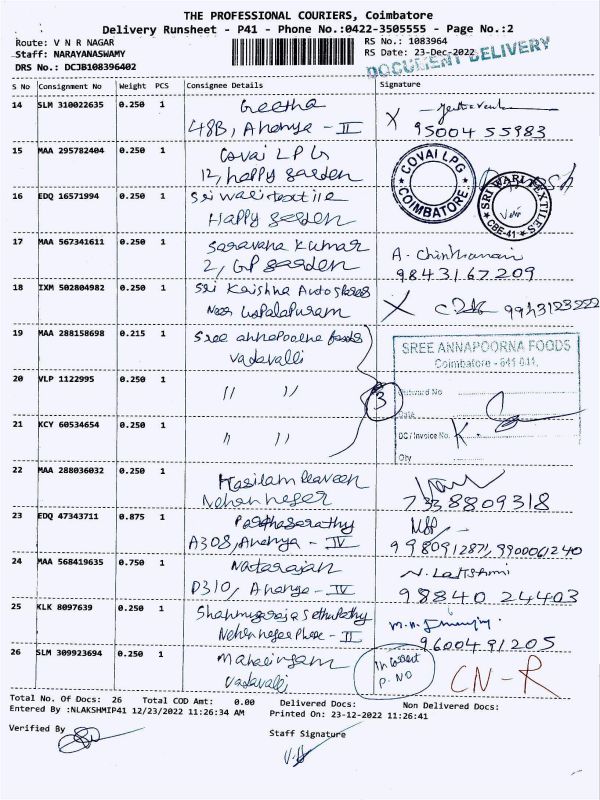 THE PROFESSIONAL COURIERS, Coimbatore
Delivery Runsheet - P41 - Phone No.:0422-3505555 - Page No.:2
Route: V N R NAGAR RS No.: 1083964
Staff: NARAYANASWAMY RS Date: 23-Dec-2022
DRS No.: DCJB108396402
DOCUMENT DELIVERY
S No Consignment No Weight PCS Consignee Details Signature
14 SLM 310022635 0.250 1 Geetha
48B, Ananya - II 95004 55983
15 MAA 295782404 0.250 1 Covai LPG
12, happy garden
COVAI LPG
COIMBATORE
16 EDQ 16571994 0.250 1 Sri wari textile
Happy garden
SRI WARI TEXTILES
CBE-41
17 MAA 567341611 0.250 1 Saravana Kumar
2, GP garden
A. Chinthamani
98431 67209
18 IXM 502804982 0.250 1 Sri Kaishna Auto
Near Gopalapuram
X 9943123222
19 MAA 288158698 0.215 1 Sree annapoorna foods
Vadavalli
SREE ANNAPOORNA FOODS
Coimbatore - 641 041.
20 VLP 1122995 0.250 1 " "
3
Outward No
Date
21 KCY 60534654 0.250 1 " "
DC / Invoice No.
Qty
22 MAA 288036032 0.250 1
Nehru nagar 7338809318
23 EDQ 47343711 0.875 1 Parthasarathy
A308, Ananya - IV 9980912871, 9900061240
24 MAA 568419635 0.750 1 Natarajan N. Lakshmi
D310, Ananya - IV 98840 24403
25 KLK 8097639 0.250 1 Shanmugaraja Sethupathy
Nehru nagar Phase - II 9600491205
26 SLM 309923694 0.250 1 Mahalingam
Vadavalli
Incorrect
P. NO
CN-R
Total No. Of Docs: 26 Total COD Amt: 0.00 Delivered Docs: Non Delivered Docs:
Entered By :NLAKSHMIP41 12/23/2022 11:26:34 AM Printed On: 23-12-2022 11:26:41
Verified By Staff Signature